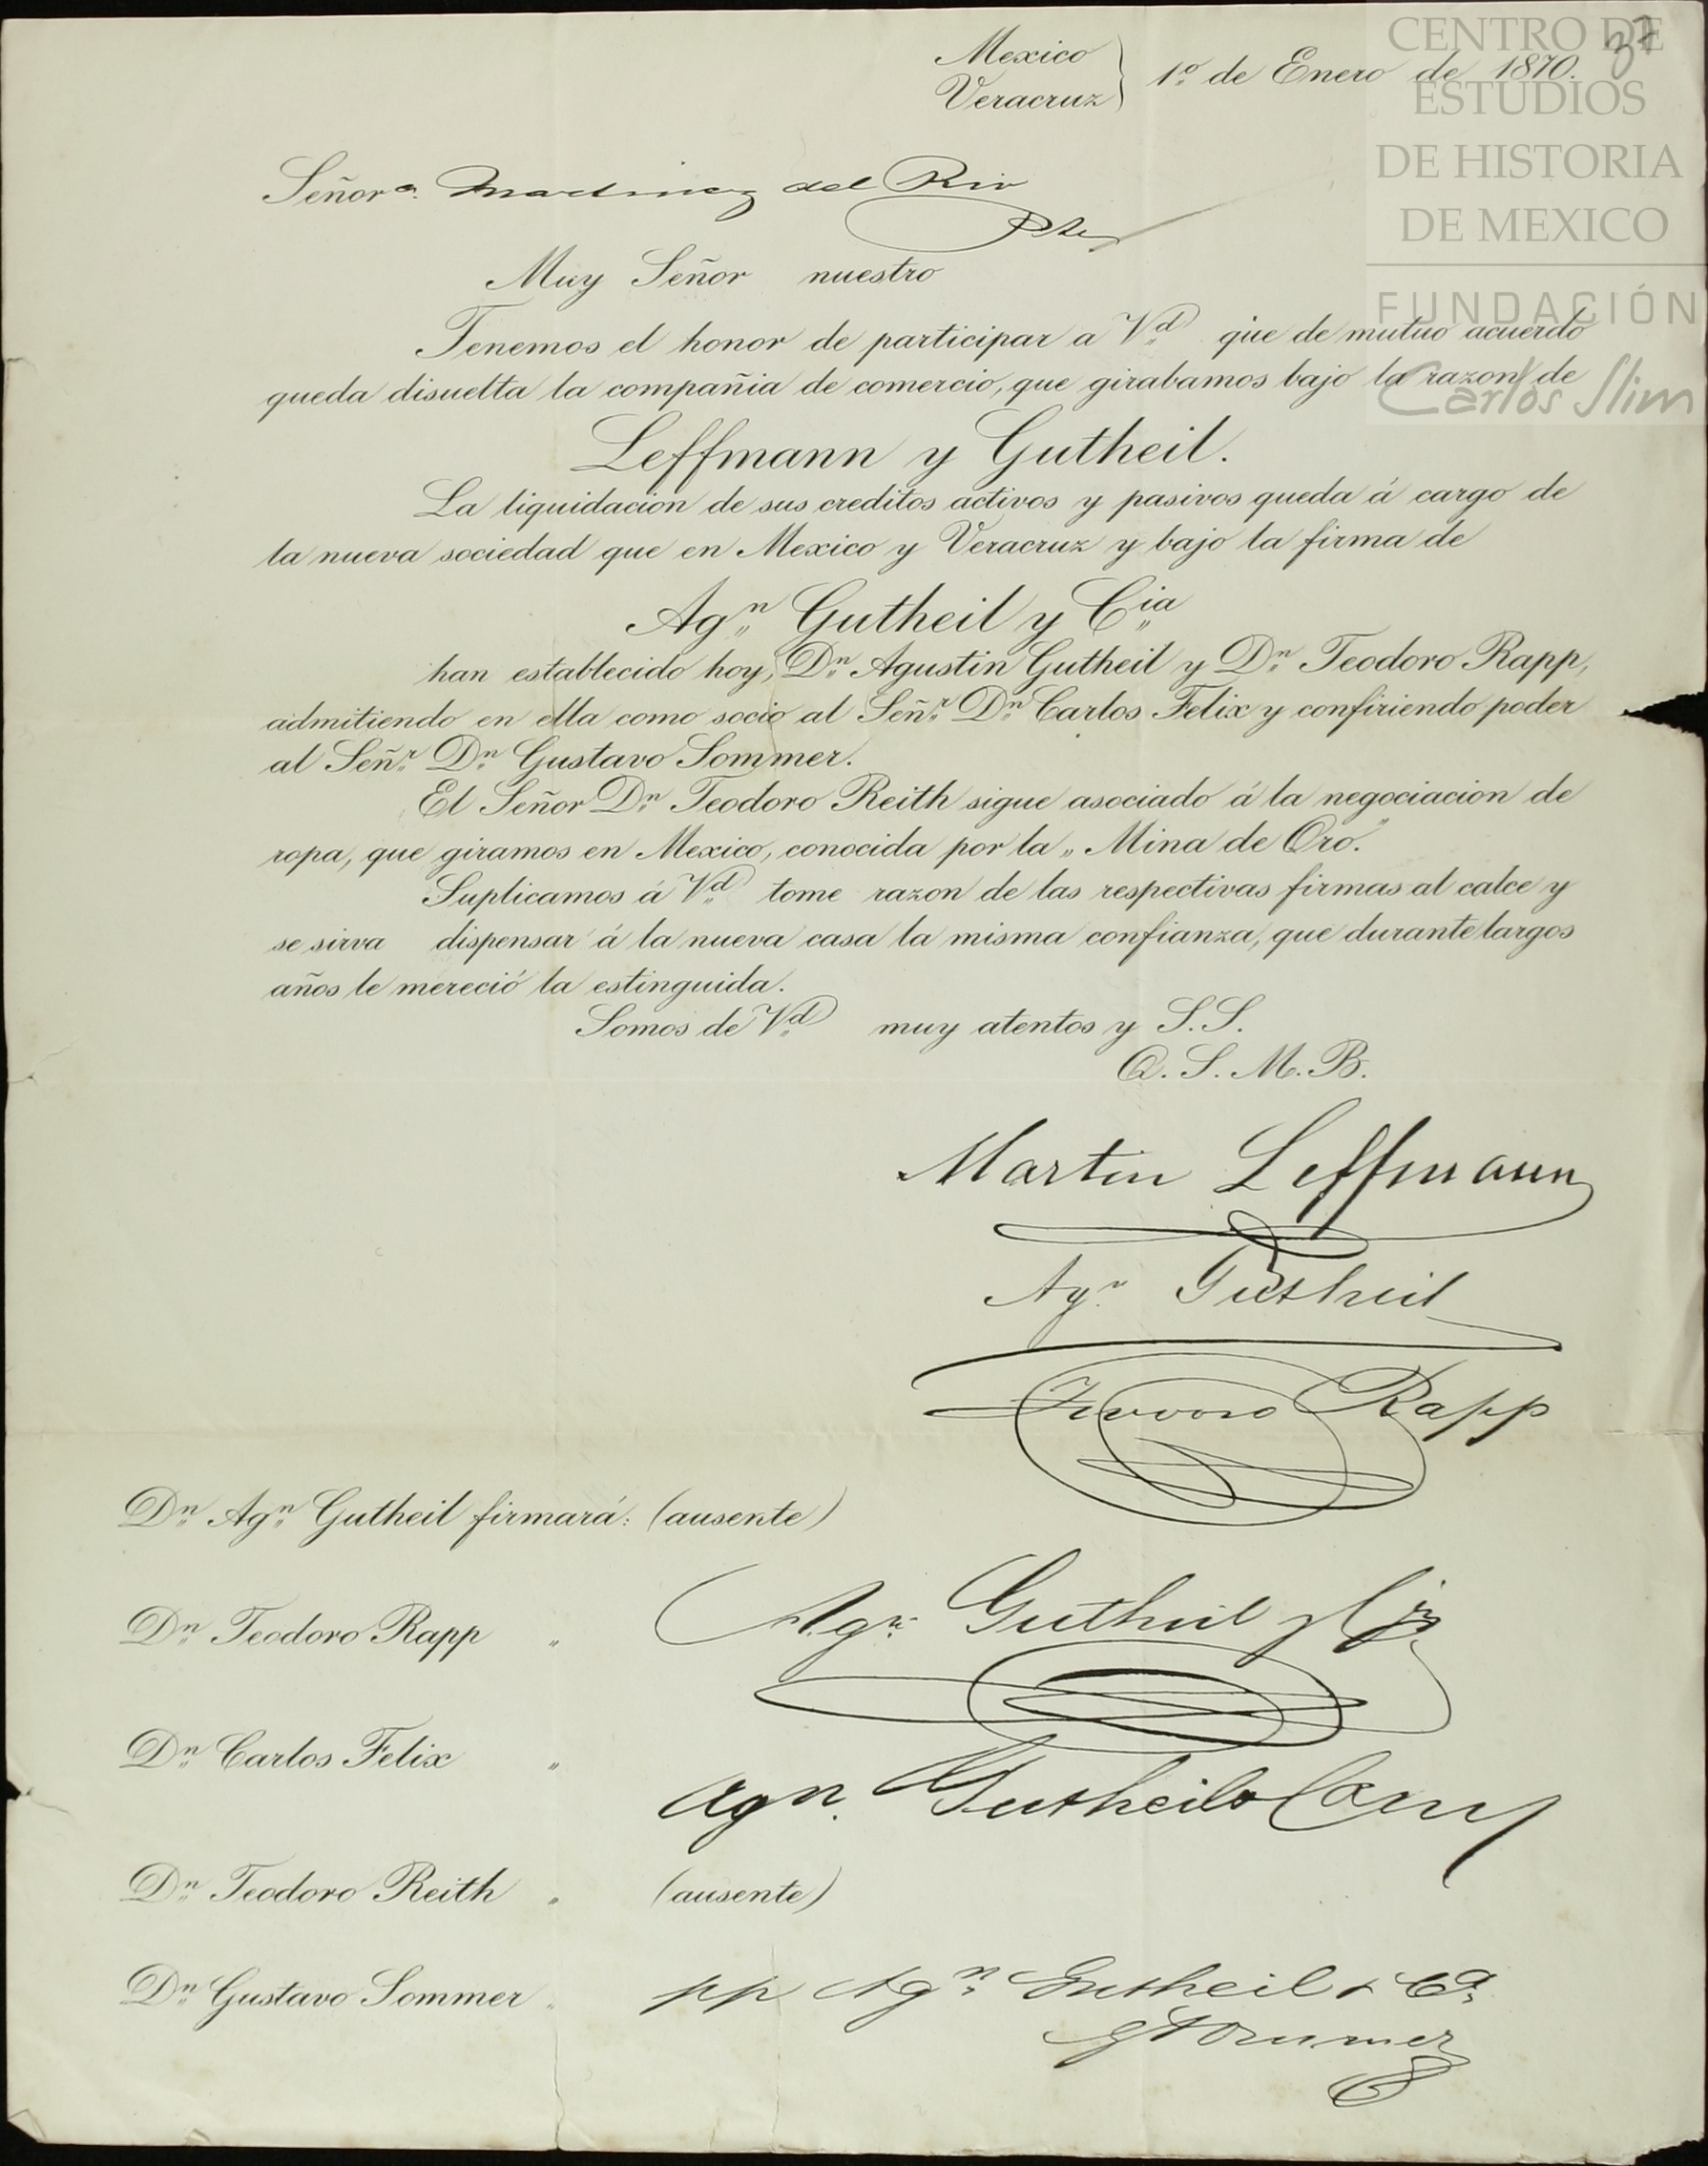 CENTRO DE
ESTUDIOS
DE HISTORIA
DE MEXICO
FUNDACIÓN
Carlos Slim
37
Mexico
Veracruz } 1º de Enero de 1870.
Señor a. Martinez del Rio
Muy Señor nuestro
Tenemos el honor de participar a Vd que de mutuo acuerdo
queda disuelta la compañia de comercio, que girabamos bajo la razon de
Leffmann y Gutheil.
La liquidacion de sus creditos activos y pasivos queda á cargo de
la nueva sociedad que en Mexico y Veracruz y bajo la firma de
Agn Gutheil y Cia
han establecido hoy, Dn Agustin Gutheil y Dn Teodoro Rapp,
admitiendo en ella como socio al Señr Dn Carlos Felix y confiriendo poder
al Señr Dn Gustavo Sommer.
El Señor Dn Teodoro Reith sigue asociado á la negociacion de
ropa, que giramos en Mexico, conocida por la „Mina de Oro.”
Suplicamos á Vd tome razon de las respectivas firmas al calce y
se sirva dispensar á la nueva casa la misma confianza, que durante largos
años le mereció la estinguida.
Somos de Vd muy atentos y S.S.
Q. S. M. B.
Martin Leffmann
Agn Gutheil
Teodoro Rapp
Dn Agn Gutheil firmará: (ausente)
Dn Teodoro Rapp „ Agn Gutheil y Cia
Dn Carlos Felix „ Agn. Gutheil & Comp
Dn Teodoro Reith „ (ausente)
Dn Gustavo Sommer „ pp Agn Gutheil & Ca
GSommer